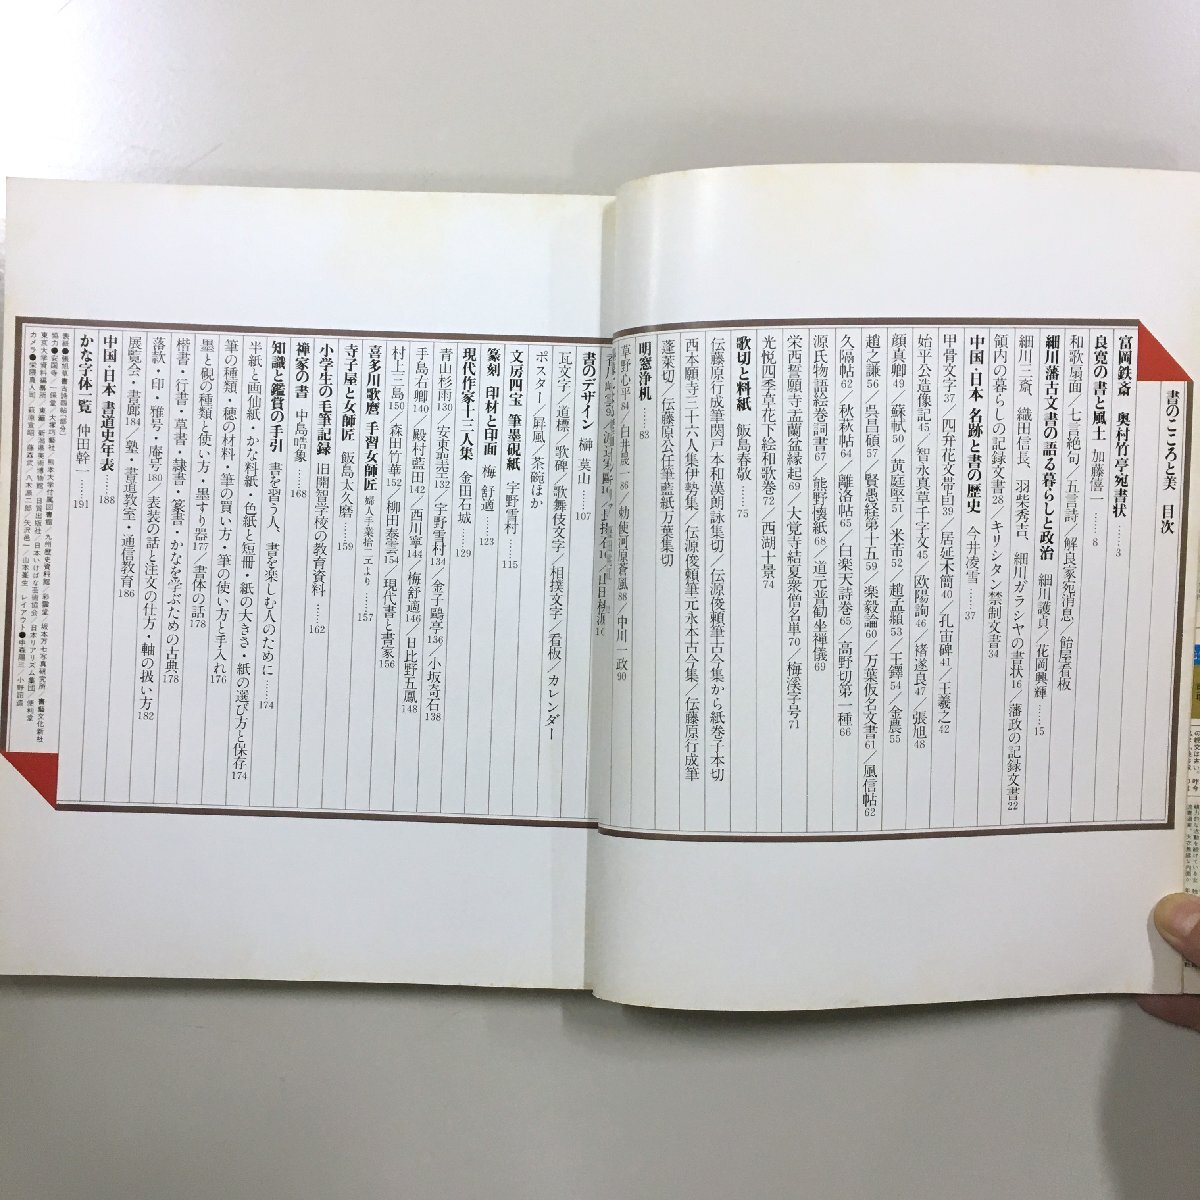 書のこころと美 目次
富岡鉄斎 奥村竹亭宛書状……3
良寛の書と風土 加藤僖一……8
和歌扇面/七言絶句/五言詩/解良家宛消息/飴屋看板
細川藩古文書の語る暮らしと政治 細川護貞/花岡興輝……15
細川三斎、織田信長、羽柴秀吉、細川ガラシヤの書状16/藩政の記録文書22
領内の暮らしの記録文書28/キリシタン禁制文書34
中国・日本 名跡と書の歴史 今井凌雪……37
甲骨文字37/四弁花文帯鏡39/居延木簡40/孔宙碑41/王羲之42
始平公造像記45/智永真草千字文45/欧陽詢46/褚遂良47/張旭48
顔真卿49/蘇軾50/黄庭堅51/米芾52/趙孟頫53/王鐸54/金農55
趙之謙56/呉昌碩57/賢愚経第十五59/楽毅論60/万葉仮名文書61/風信帖62
久隔帖62/秋萩帖64/離洛帖65/白楽天詩巻65/高野切第一種66
源氏物語絵巻詞書67/熊野懐紙68/道元普勧坐禅儀69
栄西誓願寺盂蘭盆縁起69/大覚寺結夏衆僧名単70/梅溪字号71
光悦四季草花下絵和歌巻72/西湖十景74
歌切と料紙 飯島春敬……75
伝藤原行成筆関戸本和漢朗詠集切/伝源俊頼筆古今集から紙巻子本切
西本願寺三十六人集伊勢集/伝源俊頼筆元永本古今集/伝藤原行成筆
蓬莱切/伝藤原公任筆藍紙万葉集切
明窓浄机……83
草野心平84/白井晟一86/勅使河原蒼風88/中川一政90
書のデザイン 榊莫山……107
瓦文字/道標/歌碑/歌舞伎文字/相撲文字/看板/カレンダー
ポスター/屛風/茶碗ほか
文房四宝 筆墨硯紙 宇野雪村……115
篆刻 印材と印面 梅舒適……123
現代作家十三人集 金田石城……129
青山杉雨130/安東聖空132/宇野雪村134/金子鷗亭136/小坂奇石138
手島右卿140/殿村藍田142/西川寧144/梅舒適146/日比野五鳳148
村上三島150/森田竹華152/柳田泰雲154/現代書と書家156
喜多川歌麿 手習女師匠 婦人手業拾二工より……157
寺子屋と女師匠 飯島太久磨……159
小学生の毛筆記録 旧開智学校の教育資料……162
禅家の書 中島皓象……168
知識と鑑賞の手引 書を習う人、書を楽しむ人のために……174
半紙と画仙紙・かな料紙・色紙と短冊・紙の大きさ・紙の選び方と保存174
筆の種類・穂の材料・筆の買い方・筆の使い方と手入れ176
墨と硯の種類と使い方・墨すり器177/書体の話178
楷書・行書・草書・隷書・篆書・かなを学ぶための古典178
落款・印・雅号・庵号180/表装の話と注文の仕方・軸の扱い方182
展覧会・書廊184/塾・書道教室・通信教育186
中国・日本 書道史年表……188
かな字体一覧 仲田幹一……191